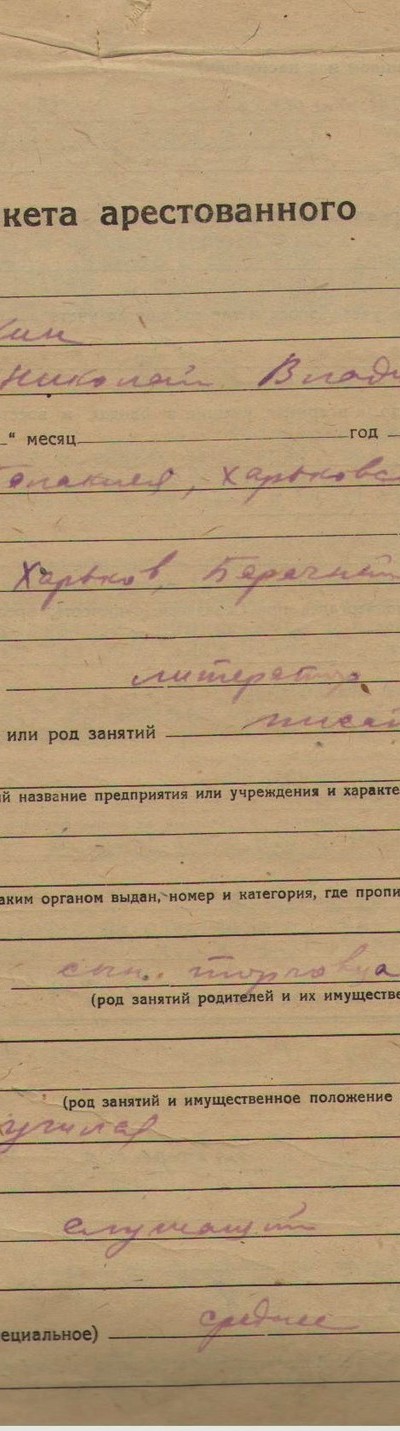 кета арестованного
кин
Николай Влади
" месяц год
Харьковс
Харьков,
литература
или род занятий писат
й название предприятия или учреждения и характе
аким органом выдан, номер и категория, где пропи
сын торговца
(род занятий родителей и их имуществе
(род занятий и имущественное положение
учился
служащий
ециальное) среднее